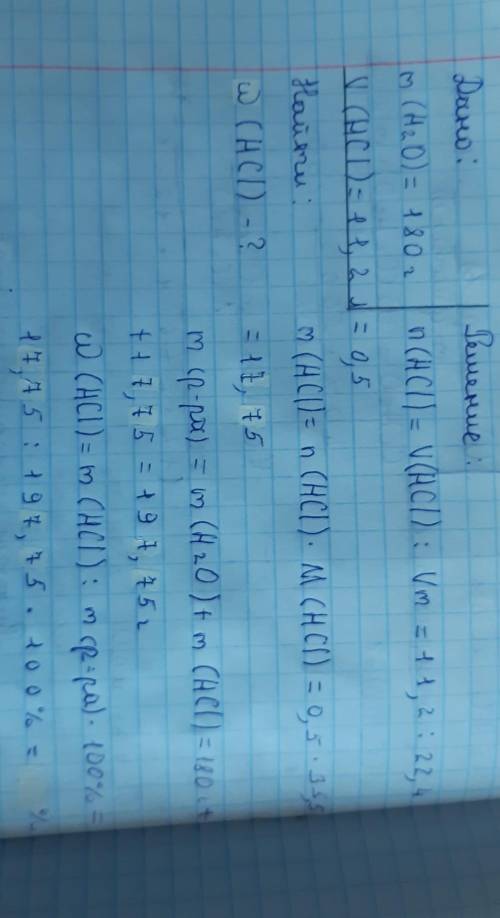 Дано:
m(H2O)=180г
V(HCl)=11,2л
Найти:
ω(HCl)-?
Решение:
n(HCl)=V(HCl):Vm=11,2:22,4
=0,5
m(HCl)=n(HCl)·M(HCl)=0,5·35,5
=17,75
m(р-ра)=m(H2O)+m(HCl)=180+
+17,75=197,75г
ω(HCl)=m(HCl):m(р-ра)·100%=
17,75:197,75·100%= %